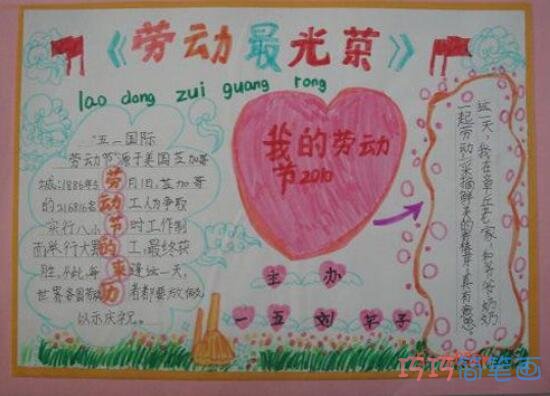 《劳动最光荣》
lao dong zui guang rong
五一国际
劳动节源于美国芝加哥
城:1886年5月1日,芝加哥
的216816名工人争取
实行八小时工作制
而举行大罢工,最终获
胜。从此,每逢这一天,
世界各国劳动者都要放假
以示庆祝。
劳动节的来历
我的劳动
节2010
主办
一五刘
这一天,我在章丘老家,和爷爷奶奶
一起劳动,采摘鲜美的香椿芽,真有意思。
巧巧简笔画